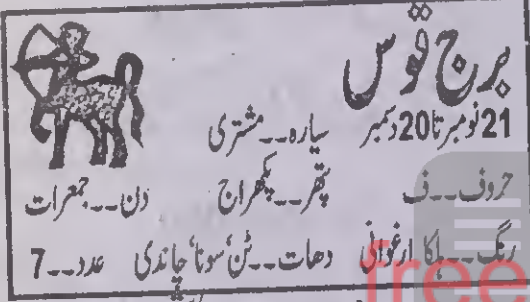 برج قوس
21 نومبر تا 20 دسمبر سیارہ۔۔مشتری
حروف۔۔ف پتھر۔۔پکھراج دن۔۔جمعرات
رنگ۔۔ہلکا ارغوانی دھات۔۔ٹن‘سونا‘چاندی عدد۔۔7
free